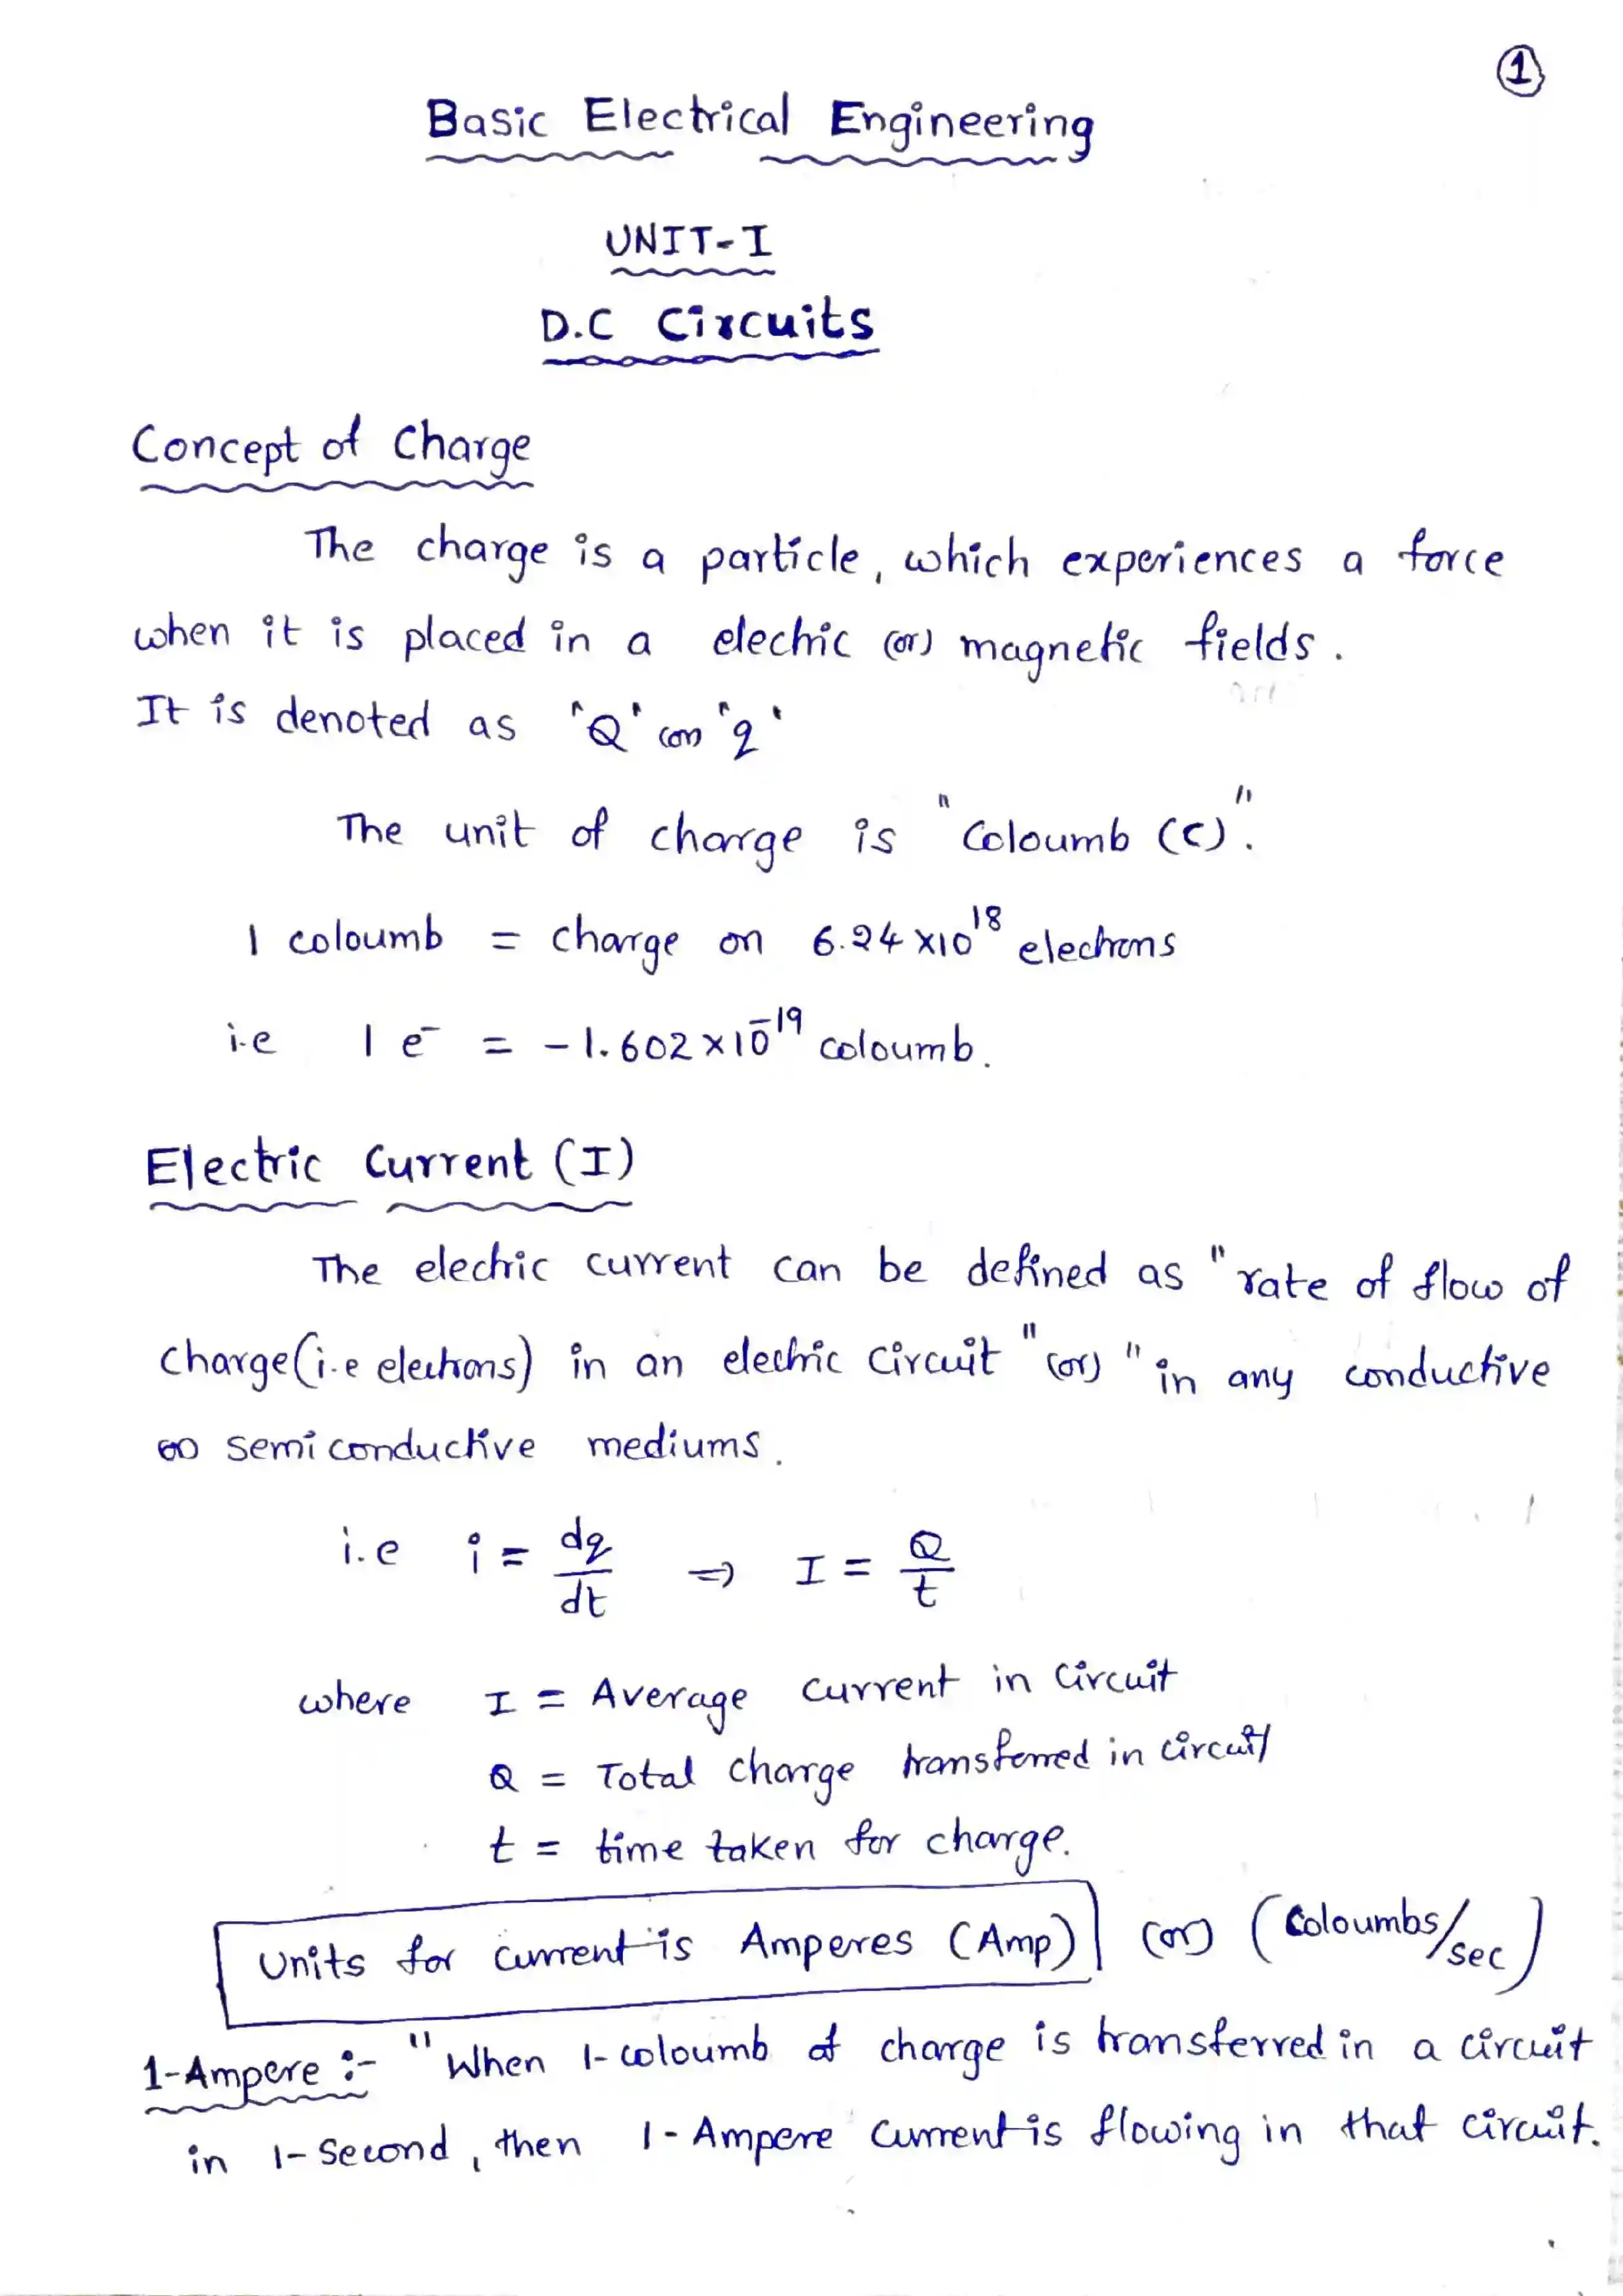 1
Basic Electrical Engineering
UNIT-I
D.C Circuits
Concept of Charge
The charge is a particle, which experiences a force
when it is placed in a electric (or) magnetic fields.
It is denoted as 'Q' (or) 'q'
The unit of charge is "Coloumb (C)".
1 coloumb = charge on 6.24 x10¹⁸ electrons
i.e 1 e⁻ = -1.602 x 10⁻¹⁹ coloumb.
Electric Current (I)
The electric current can be defined as "rate of flow of
charge (i.e electrons) in an electric circuit" (or) "in any conductive
(or) semi conductive mediums.
i.e i = dq/dt => I = Q/t
where I = Average current in circuit
Q = Total charge transferred in circuit
t = time taken for charge.
Units for current is Amperes (Amp) (or) (Coloumbs/sec)
1-Ampere :- "When 1-coloumb of charge is transferred in a circuit
in 1-second, then 1-Ampere current is flowing in that circuit.